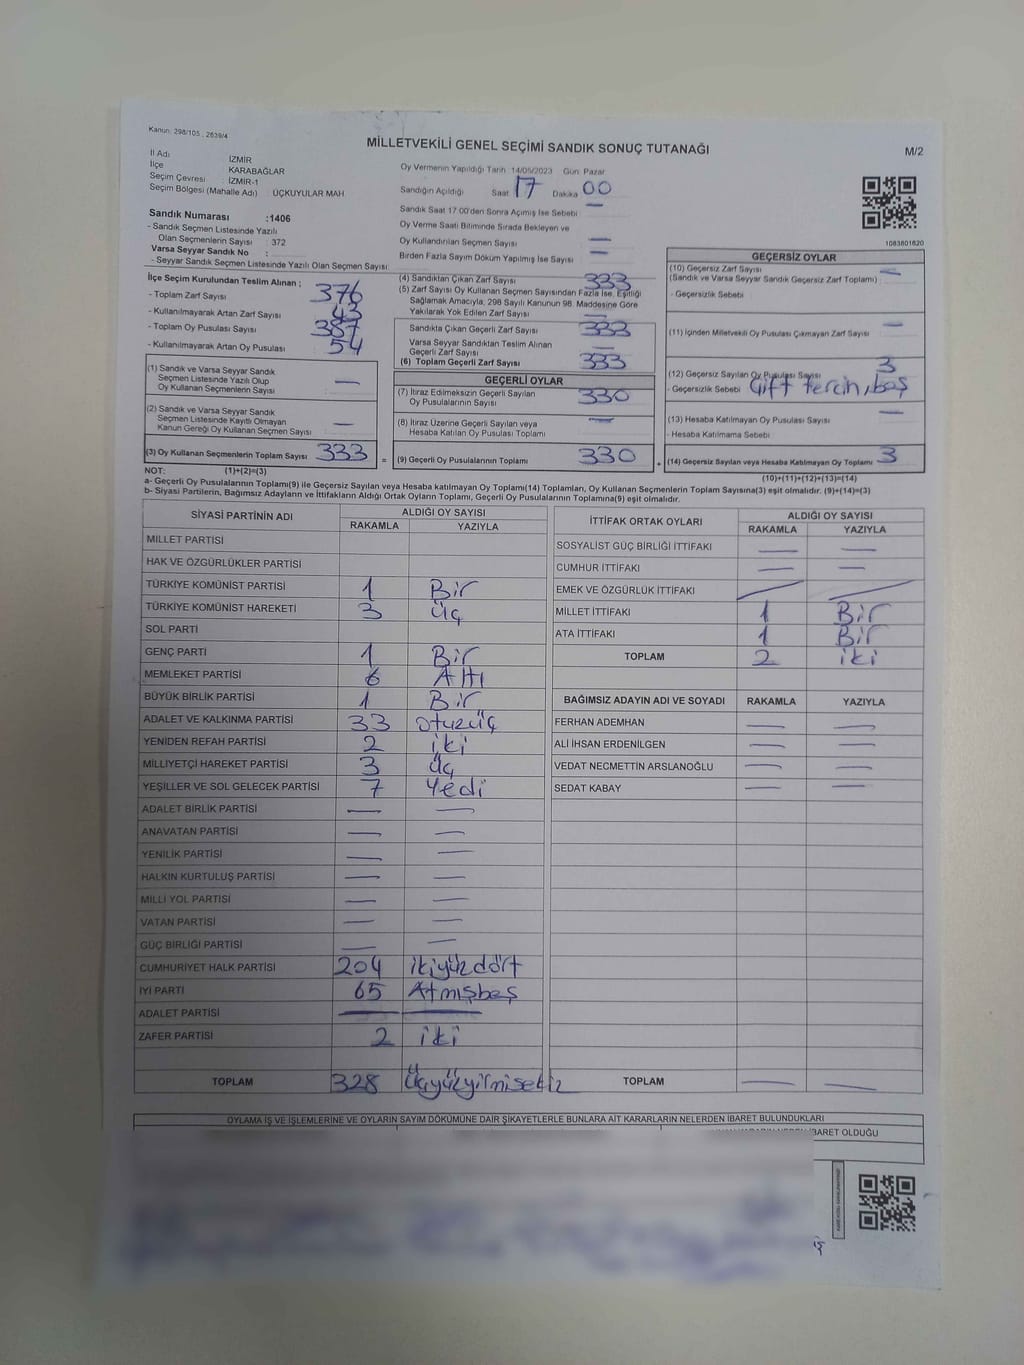 Kanun: 298/105 , 2839/4
MİLLETVEKİLİ GENEL SEÇİMİ SANDIK SONUÇ TUTANAĞI
M/2
İl Adı İZMİR
İlçe KARABAĞLAR
Seçim Çevresi İZMİR-1
Seçim Bölgesi (Mahalle Adı) ÜÇKUYULAR MAH
Sandık Numarası :1406
- Sandık Seçmen Listesinde Yazılı
Olan Seçmenlerin Sayısı : 372
Varsa Seyyar Sandık No :
- Seyyar Sandık Seçmen Listesinde Yazılı Olan Seçmen Sayısı:
Oy Vermenin Yapıldığı Tarih 14/05/2023 Gün Pazar
Sandığın Açıldığı Saat 17 Dakika 00
Sandık Saat 17:00'den Sonra Açılmış İse Sebebi —
Oy Verme Saati Bitiminde Sırada Bekleyen ve
Oy Kullandırılan Seçmen Sayısı —
Birden Fazla Sayım Döküm Yapılmış İse Sayısı —
1083801620
İlçe Seçim Kurulundan Teslim Alınan ;
- Toplam Zarf Sayısı 376
- Kullanılmayarak Artan Zarf Sayısı 43
- Toplam Oy Pusulası Sayısı 387
- Kullanılmayarak Artan Oy Pusulası 54
(1) Sandık ve Varsa Seyyar Sandık
Seçmen Listesinde Yazılı Olup
Oy Kullanan Seçmenlerin Sayısı —
(2) Sandık ve Varsa Seyyar Sandık
Seçmen Listesinde Kayıtlı Olmayan
Kanun Gereği Oy Kullanan Seçmen Sayısı —
(3) Oy Kullanan Seçmenlerin Toplam Sayısı 333
(4) Sandıktan Çıkan Zarf Sayısı 333
(5) Zarf Sayısı Oy Kullanan Seçmen Sayısından Fazla İse, Eşitliği
Sağlamak Amacıyla, 298 Sayılı Kanunun 98. Maddesine Göre
Yakılarak Yok Edilen Zarf Sayısı —
Sandıkta Çıkan Geçerli Zarf Sayısı 333
Varsa Seyyar Sandıktan Teslim Alınan
Geçerli Zarf Sayısı —
(6) Toplam Geçerli Zarf Sayısı 333
GEÇERLİ OYLAR
(7) İtiraz Edilmeksizin Geçerli Sayılan
Oy Pusulalarının Sayısı 330
(8) İtiraz Üzerine Geçerli Sayılan veya
Hesaba Katılan Oy Pusulası Toplamı —
= (9) Geçerli Oy Pusulalarının Toplamı 330 +
GEÇERSİZ OYLAR
(10) Geçersiz Zarf Sayısı
(Sandık ve Varsa Seyyar Sandık Geçersiz Zarf Toplamı) —
- Geçersizlik Sebebi :
(11) İçinden Milletvekili Oy Pusulası Çıkmayan Zarf Sayısı —
(12) Geçersiz Sayılan Oy Pusulası Sayısı 3
- Geçersizlik Sebebi Çift tercih, boş
(13) Hesaba Katılmayan Oy Pusulası Sayısı —
- Hesaba Katılmama Sebebi
(14) Geçersiz Sayılan veya Hesaba Katılmayan Oy Toplamı 3
NOT: (1)+(2)=(3) (10)+(11)+(12)+(13)=(14)
a- Geçerli Oy Pusulalarının Toplamı(9) ile Geçersiz Sayılan veya Hesaba katılmayan Oy Toplamı(14) Toplamları, Oy Kullanan Seçmenlerin Toplam Sayısına(3) eşit olmalıdır. (9)+(14)=(3)
b- Siyasi Partilerin, Bağımsız Adayların ve İttifakların Aldığı Ortak Oyların Toplamı, Geçerli Oy Pusulalarının Toplamına(9) eşit olmalıdır.
SİYASİ PARTİNİN ADI ALDIĞI OY SAYISI
RAKAMLA YAZIYLA
MİLLET PARTİSİ
HAK VE ÖZGÜRLÜKLER PARTİSİ
TÜRKİYE KOMÜNİST PARTİSİ 1 Bir
TÜRKİYE KOMÜNİST HAREKETİ 3 Üç
SOL PARTİ
GENÇ PARTİ 1 Bir
MEMLEKET PARTİSİ 6 Altı
BÜYÜK BİRLİK PARTİSİ 1 Bir
ADALET VE KALKINMA PARTİSİ 33 otuzüç
YENİDEN REFAH PARTİSİ 2 iki
MİLLİYETÇİ HAREKET PARTİSİ 3 Üç
YEŞİLLER VE SOL GELECEK PARTİSİ 7 Yedi
ADALET BİRLİK PARTİSİ — —
ANAVATAN PARTİSİ — —
YENİLİK PARTİSİ — —
HALKIN KURTULUŞ PARTİSİ — —
MİLLİ YOL PARTİSİ — —
VATAN PARTİSİ — —
GÜÇ BİRLİĞİ PARTİSİ — —
CUMHURİYET HALK PARTİSİ 204 ikiyüzdört
İYİ PARTİ 65 Atmışbeş
ADALET PARTİSİ — —
ZAFER PARTİSİ 2 iki
TOPLAM 328 Üçyüzyirmisekiz
İTTİFAK ORTAK OYLARI ALDIĞI OY SAYISI
RAKAMLA YAZIYLA
SOSYALİST GÜÇ BİRLİĞİ İTTİFAKI — —
CUMHUR İTTİFAKI — —
EMEK VE ÖZGÜRLÜK İTTİFAKI — —
MİLLET İTTİFAKI 1 Bir
ATA İTTİFAKI 1 Bir
TOPLAM 2 iki
BAĞIMSIZ ADAYIN ADI VE SOYADI RAKAMLA YAZIYLA
FERHAN ADEMHAN — —
ALİ İHSAN ERDENİLGEN — —
VEDAT NECMETTİN ARSLANOĞLU — —
SEDAT KABAY — —
TOPLAM — —
OYLAMA İŞ VE İŞLEMLERİNE VE OYLARIN SAYIM DÖKÜMÜNE DAİR ŞİKAYETLERLE BUNLARA AİT KARARLARIN NELERDEN İBARET BULUNDUKLARI
İBARET OLDUĞU